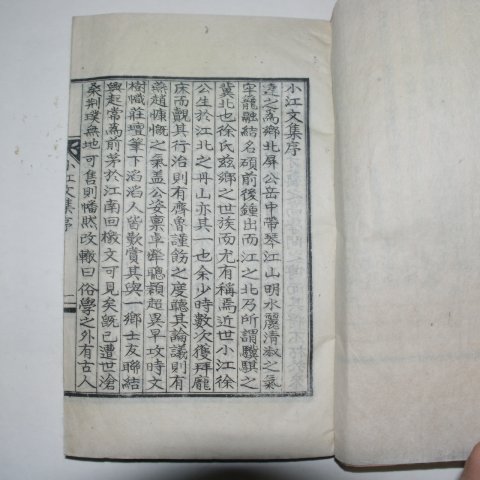 小江文集序
達之爲鄕北屛公岳中帶琴江山明水麗淸淑之氣
牢籠融結名碩前後鍾出而江之北乃所謂驥騏之
冀北也徐氏玆鄕之世族而尤有稱焉近世小江徐
公生於江北之丹山亦其一也余少時數次獲拜龐
床而觀其行治則有齊魯謹節之度聽其論議則有
燕趙慷慨之氣盖公姿稟卓犖聰穎超異早攻時文
樹幟荘壇筆下滔滔人皆歎賞其與一鄕士友聯結
興起常爲前茅於江南回檄文可見矣旣已遭世滄
桑荆璞無地可售則幡然改轍曰俗學之外有古人
小江文集序